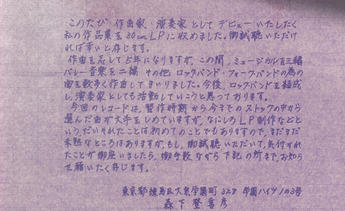 このたび 作曲家・演奏家としてデビューいたしたく
私の作品集を30cmLPに収めました。御試聴いただけ
れば幸いと存じます。
作曲を志して5年になりますが、この間、ミュージカルを三編
バレー音楽を二編 その他 ロックバンド・フォークバンドの為の
曲を数多く作曲してまいりました。今後、ロックバンドを結成
し、演奏家としても活動していこうと思っております。
今回のレコードは、習作時代から今までのストックの中から
選んだ曲が大半をしめていますが、なにしろLP制作などと
いうだいそれたことは初めてのことでもありますので、まだまだ
未熟なところはありますが、もし、御試聴いただいて、気付かれ
たことが御座いましたら、御手数ながら下記の所までお知ら
せ願いたく存じます。
東京都練馬区大泉学園町 学園ハイツ1の3号
森下登喜彦